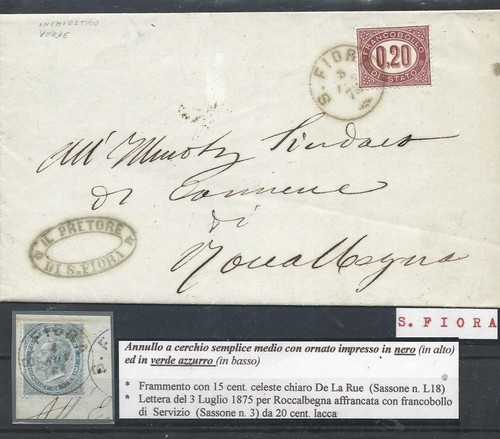 INCHIOSTRO
VERDE
FRANCOBOLLO
0,20
DI STATO
S. FIORA
All' Illmo Sig Sindaco
di Comune
di
Roccalbegna
IL PRETORE
DI S. FIORA
S. FIORA
S. FIORA
Annullo a cerchio semplice medio con ornato impresso in nero (in alto)
ed in verde azzurro (in basso)
* Frammento con 15 cent. celeste chiaro De La Rue (Sassone n. L18)
* Lettera del 3 Luglio 1875 per Roccalbegna affrancata con francobollo
di Servizio (Sassone n. 3) da 20 cent. lacca